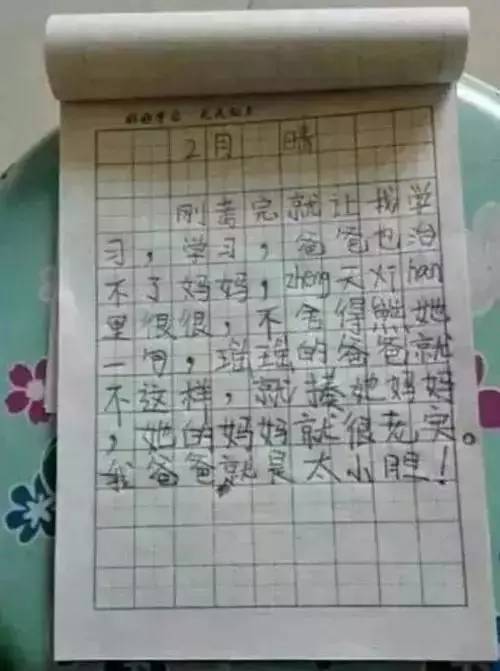 好好学习 天天向上
2月 晴
刚吉完就让我学
习，学习，爸爸也治
不了妈妈，zheng天对han
里很很，不舍得熊她
一句，瑶瑶的爸爸就
不这样，就揍她妈妈
，她的妈妈就很老实。
我爸爸就是太小胆！